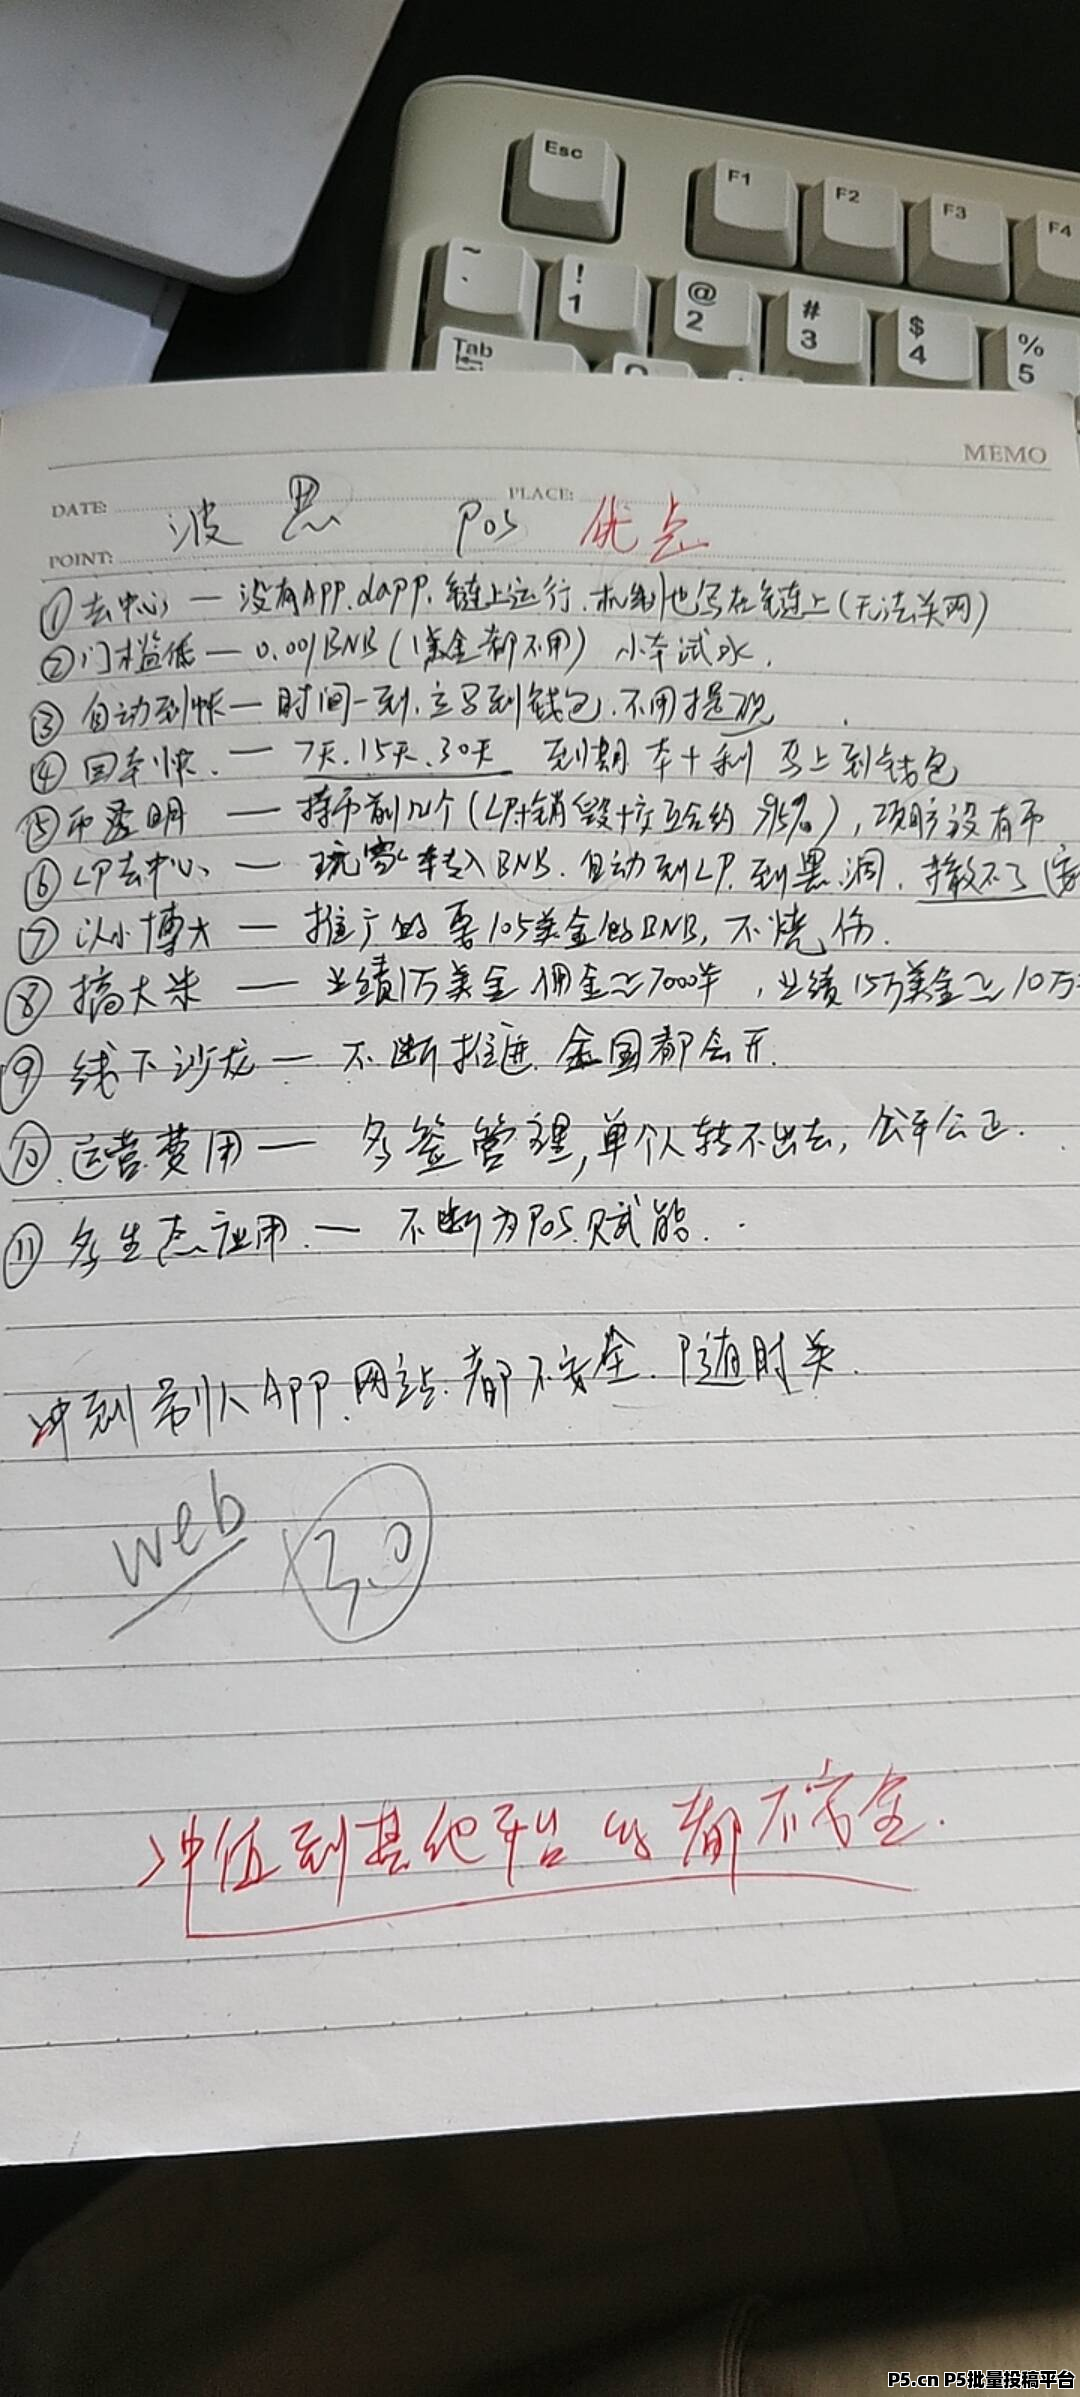 Esc F1 F2 F3 F4
~ ! @ # $ %
` 1 2 3 4 5
Tab
MEMO
DATE: PLACE:
波思 POS 优点
POINT:
①去中心 — 没有APP.dAPP.链上运行.机制也写在链上(无法关网)
②门槛低 — 0.001BNB(1美金都不用) 小本试水.
③自动到帐 — 时间一到.立马到钱包.不用提现
④回本快. — 7天.15天.30天 到期 本+利 马上到钱包
⑤币透明 — 持币前几个(LP+销毁+交互合约 95%), 项方没有币
⑥LP去中心 — 玩家转入BNB.自动到LP.到黑洞.撤不了(
⑦以小博大 — 推广的要105美金的BNB, 不烧伤.
⑧搞大米 — 业绩1万美金 佣金≈7000米, 业绩15万美金≈10万
⑨线下沙龙 — 不断推进.全国都会开.
⑩运营费用 — 多签管理,单个人转不出去, 公平公正.
⑪多生态应用. — 不断为POS.赋能.
冲到别人APP.网站.都不安全.随时关.
web 3.0
冲值到其他平台的都不安全.
P5.cn P5批量投稿平台